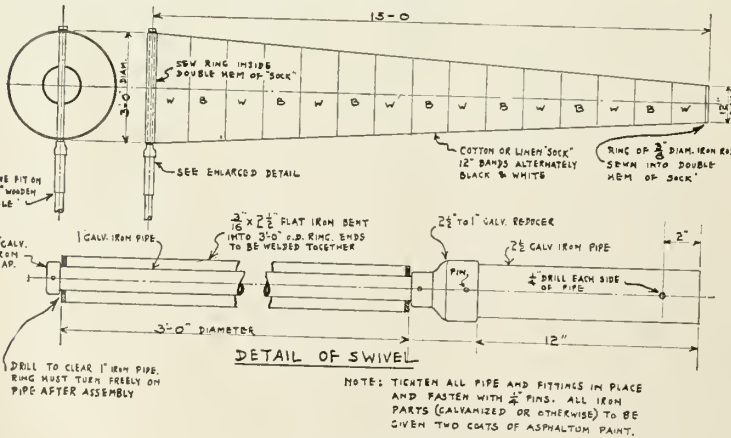 15-0
SEW RING INSIDE
DOUBLE HEM OF "SOCK"
3'-0" DIAM.
W B W B W B W B W B W B W B W
COTTON OR LINEN "SOCK"
12" BANDS ALTERNATELY
BLACK & WHITE
RING OF 3/8" DIAM. IRON
SEWN INTO DOUBLE
HEM OF SOCK"
SEE ENLARGED DETAIL
FIT ON
"WOODEN
GALV.
1" GALV. IRON PIPE
3/16 x 2 1/2" FLAT IRON BENT
INTO 3'-0" O.D. RING. ENDS
TO BE WELDED TOGETHER
2 1/2" TO 1" GALV. REDUCER
2 1/2 GALV IRON PIPE
2"
PIN
1/4" DRILL EACH SIDE
OF PIPE
3'-0" DIAMETER
12"
DETAIL OF SWIVEL
DRILL TO CLEAR 1" IRON PIPE.
RING MUST TURN FREELY ON
PIPE AFTER ASSEMBLY
NOTE: TIGHTEN ALL PIPE AND FITTINGS IN PLACE
AND FASTEN WITH 1/4" PINS. ALL IRON
PARTS (GALVANIZED OR OTHERWISE) TO BE
GIVEN TWO COATS OF ASPHALTUM PAINT.